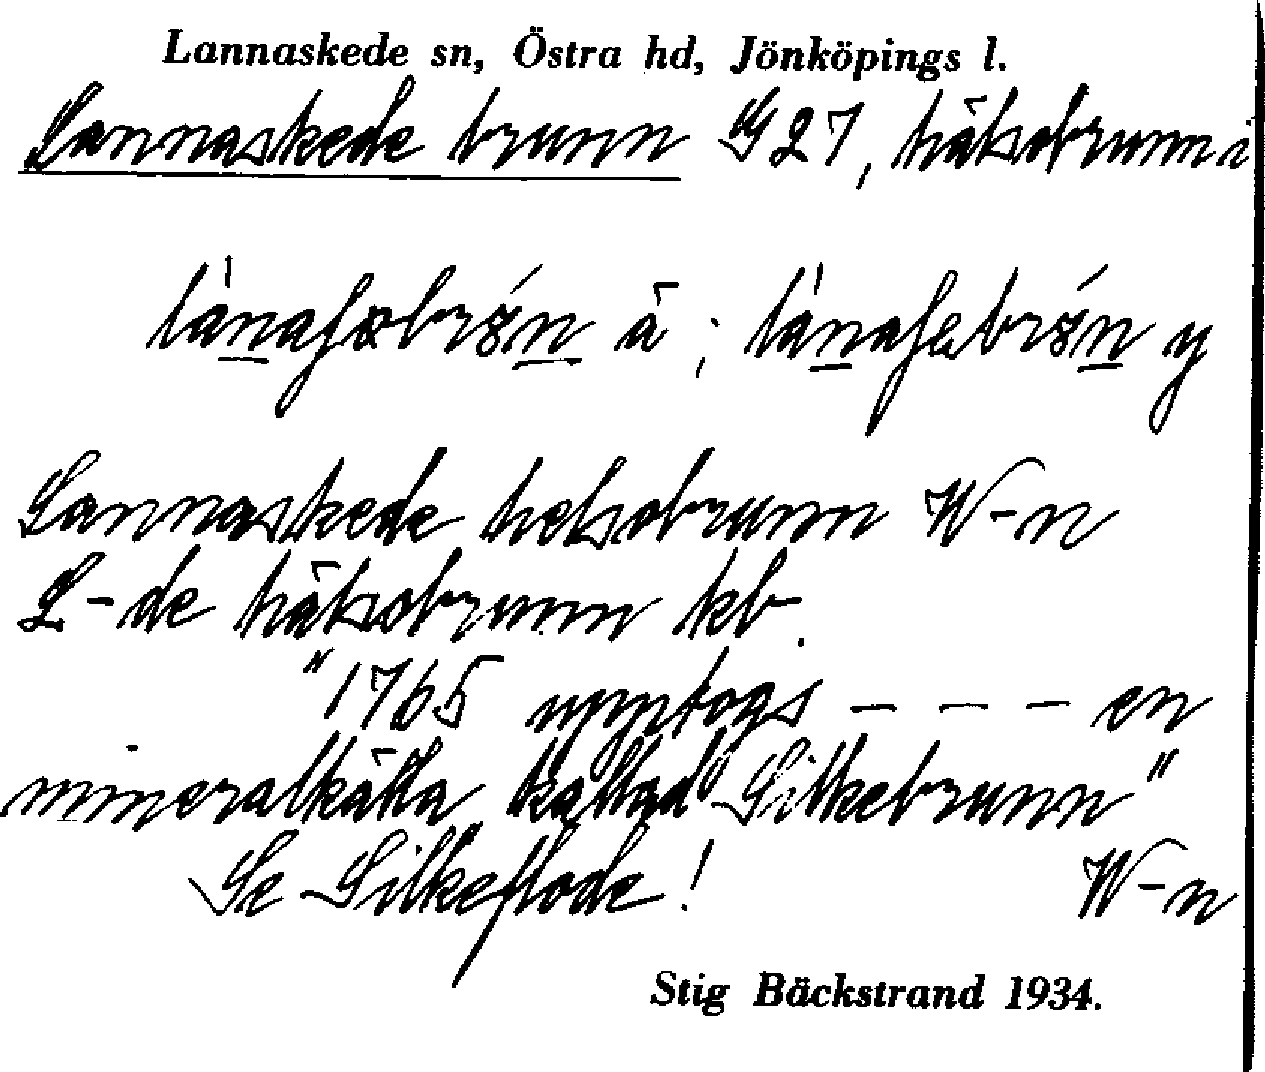 Lannaskede sn, Östra hd, Jönköpings l.
Lannaskede brunn G27, hälsobrunn i
ä ; y
Lannaskede helsobrunn W-n
L-de hälsobrunn kb.
"1765 upptogs – – – en
mineralkälla kallad Silkebrunn"
Se Silkeflode! W-n
Stig Bäckstrand 1934.